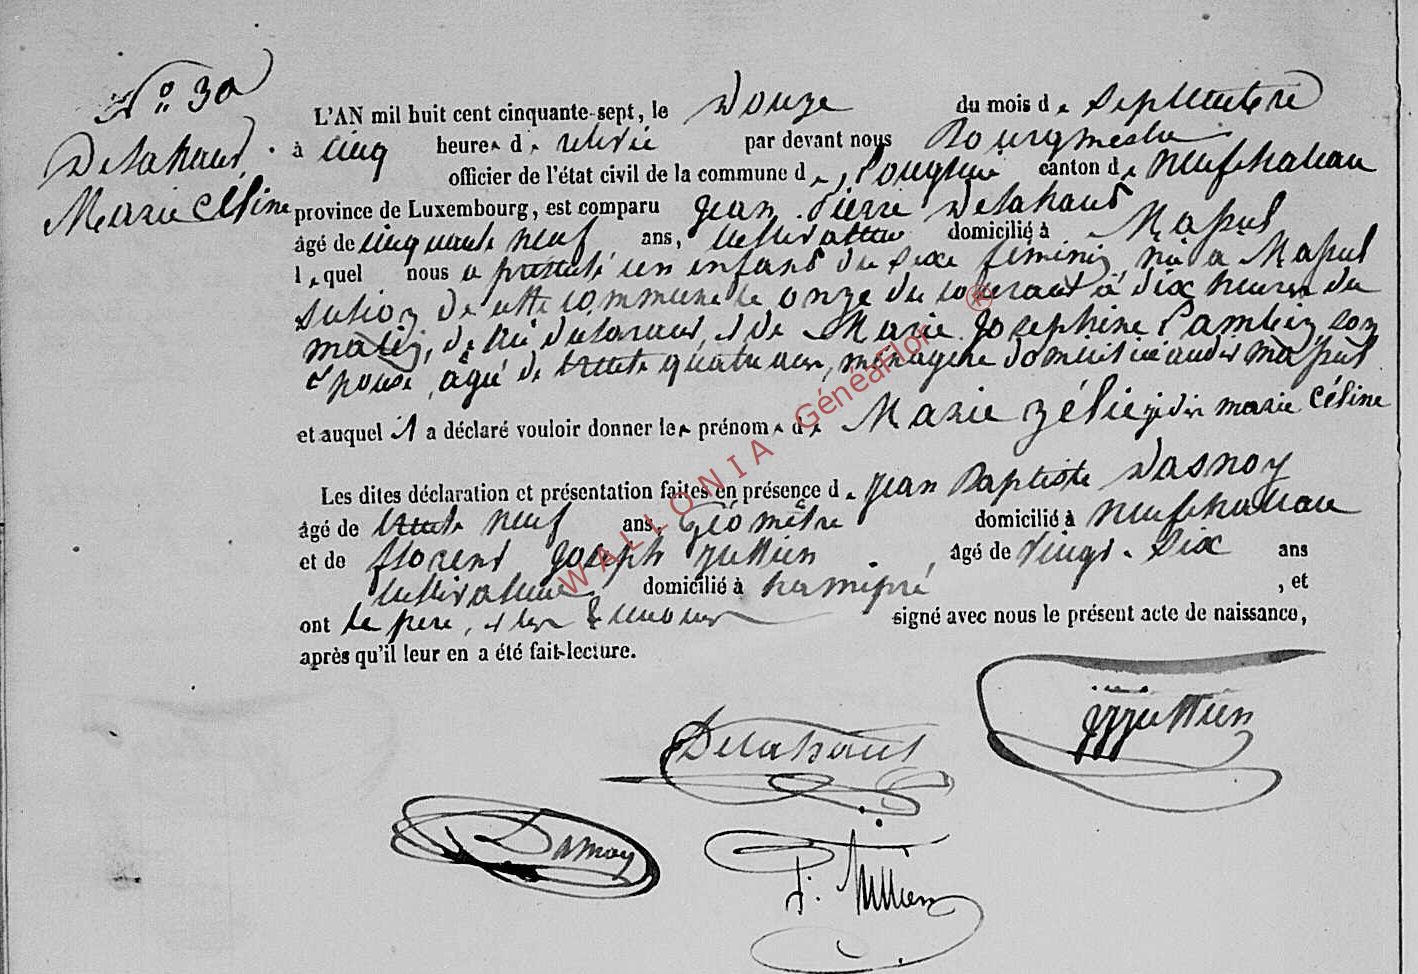 N° 30
Delahaut,
Marie Céline
L'AN mil huit cent cinquante-sept, le Douze du mois de Septembre
à cinq heures de relevée par devant nous Bourgmestre
officier de l'état civil de la commune de Longlier canton de Neufchateau
province de Luxembourg, est comparu Jean Pierre Delahaut
âgé de cinquante neuf ans, cultivateur domicilié à Massul
lequel nous a présenté un enfant du sexe féminin, né à Massul
section de cette commune le onze du courant à dix heures du
matin, de lui déclarant, et de Marie Josephine Lambin son
épouse, agée de trente quatre ans, ménagère domiciliée audit Massul
et auquel il a déclaré vouloir donner les prénoms de Marie Zélie je dis marie Céline
Les dites déclaration et présentation faites en présence de Jean Baptiste Dasnoy
âgé de trente neuf ans, Géomètre domicilié à Neufchateau
et de florent Joseph Jullien, âgé de vingt-six ans
cultivateur domicilié à hamipré, et
ont le père, et les témoins signé avec nous le présent acte de naissance,
après qu'il leur en a été fait lecture.
Jullien
Delahaut
Dasnoy
Jullien
WALLONIA GénéaFlor ®